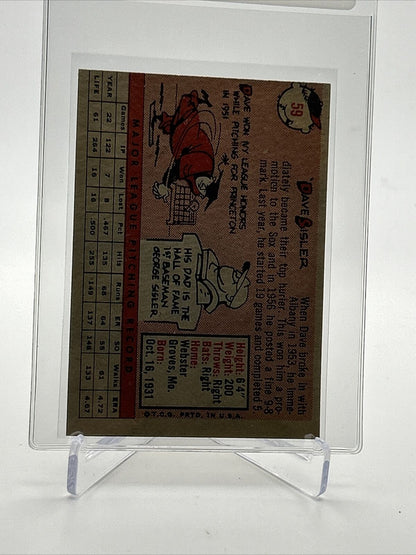 59
DAVE SISLER
When Dave broke in with
Albany in 1953, he imme-
diately became their top hurler. This led to a pro-
motion to the Sox and in 1956 he posted a fine 9-8
mark. Last year, he started 19 games and completed 5.
DAVE WON IVY LEAGUE HONORS
WHILE PITCHING FOR PRINCETON
IN 1951
HIS DAD IS THE
HALL OF FAME
1ST BASEMAN
GEORGE SISLER
Height: 6'4"
Weight: 200
Throws: Right
Bats: Right
Home:
Webster
Groves, Mo.
Born:
Oct. 16, 1931
MAJOR LEAGUE PITCHING RECORD
Games IP Won Lost Pct. Hits Runs ER SO Walks ERA
YEAR 22 122 7 8 .467 135 68 64 55 61 4.72
LIFE 61 264 16 16 .500 255 149 137 148 133 4.67
© T.C.G. PRTD. IN U.S.A.